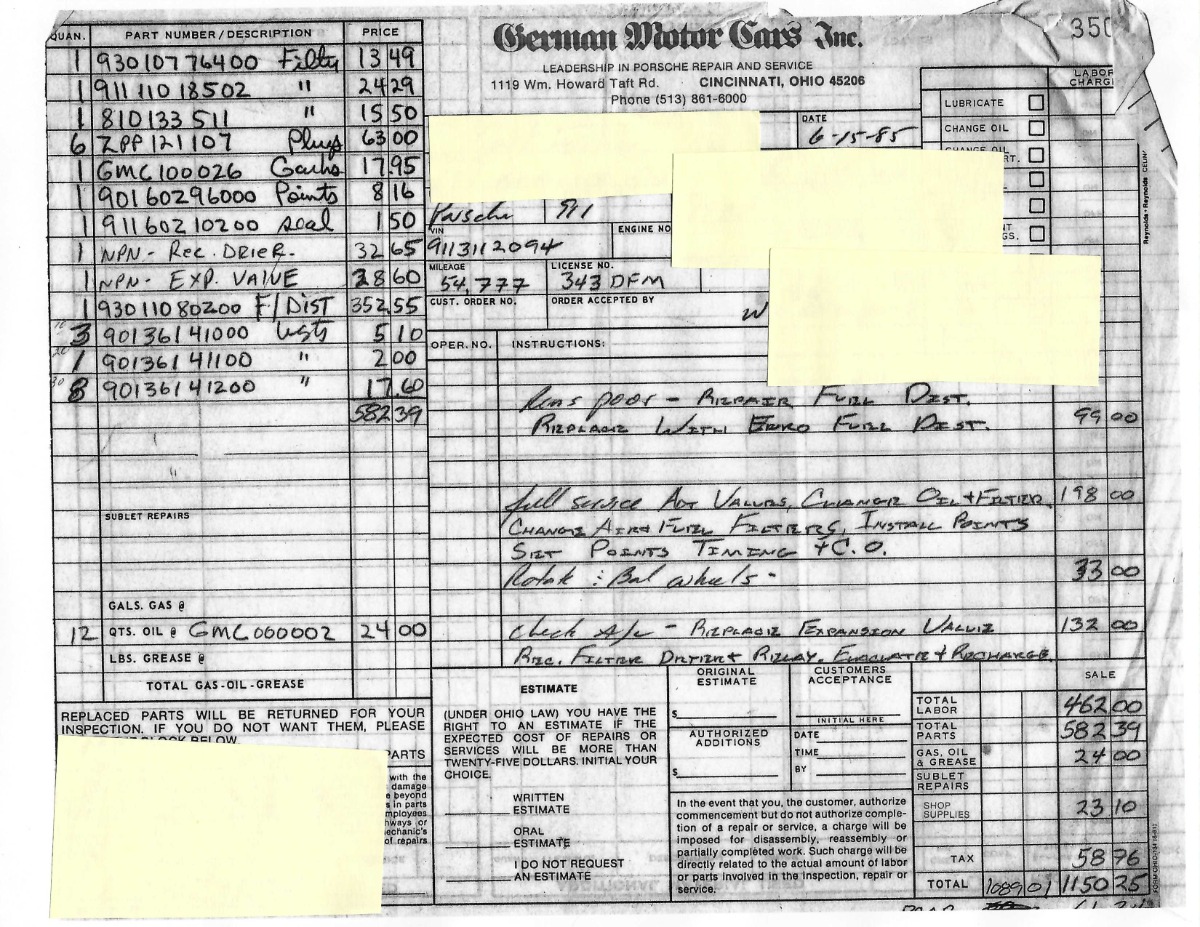 German Motor Cars Inc.
LEADERSHIP IN PORSCHE REPAIR AND SERVICE
1119 Wm. Howard Taft Rd. CINCINNATI, OHIO 45206
Phone (513) 861-6000
350
QUAN. PART NUMBER/DESCRIPTION PRICE
1 93010776400 Filty 13 49
1 91111018502 " 24 29
1 810133511 " 15 50
6 ZPP121107 Plugs 63 00
1 GMC100026 17.95
1 90160296000 Points 8 16
1 91160210200 seal 1 50
1 NPN - Rec. Drier. 32 65
1 NPN - EXP. VALVE 28 60
1 93011080200 F/DIST 352.55
10 3 90136141000 5 10
20 1 90136141100 " 2 00
30 8 90136141200 " 17.60
582 39
SUBLET REPAIRS
GALS. GAS @
12 QTS. OIL @ GMC000002 24 00
LBS. GREASE @
TOTAL GAS-OIL-GREASE
DATE
6-15-85
Porsche 911
VIN ENGINE NO
9113112094
MILEAGE LICENSE NO.
54,777 343 DFM
CUST. ORDER NO. ORDER ACCEPTED BY
W
LABOR CHARGE
LUBRICATE
CHANGE OIL
CHANGE OIL
RT.
NT
GS.
OPER. NO. INSTRUCTIONS:
Runs poor - Repair Fuel Dist.
Replace With Fuel Dist. 99 00
full service Adj Valves, Change Oil + Filter 198 00
Change Air + Fuel Filters, Install Points
Set Points Timing + C.O.
Rotate : Bal wheels - 33 00
Check A/c - Replace Expansion Valve 132 00
Rec. Filter Dryer + Relay. Evacuate + Recharge.
REPLACED PARTS WILL BE RETURNED FOR YOUR
INSPECTION. IF YOU DO NOT WANT THEM, PLEASE
BLOCK BELOW.
PARTS
with the
damage
beyond
s in parts
mployees
hways or
echanic's
of repairs
ESTIMATE
(UNDER OHIO LAW) YOU HAVE THE
RIGHT TO AN ESTIMATE IF THE
EXPECTED COST OF REPAIRS OR
SERVICES WILL BE MORE THAN
TWENTY-FIVE DOLLARS. INITIAL YOUR
CHOICE.
WRITTEN
ESTIMATE
ORAL
ESTIMATE
I DO NOT REQUEST
AN ESTIMATE
ORIGINAL ESTIMATE
$
AUTHORIZED ADDITIONS
$
CUSTOMERS ACCEPTANCE
INITIAL HERE
DATE
TIME
BY
In the event that you, the customer, authorize
commencement but do not authorize comple-
tion of a repair or service, a charge will be
imposed for disassembly, reassembly or
partially completed work. Such charge will be
directly related to the actual amount of labor
or parts involved in the inspection, repair or
service.
SALE
TOTAL LABOR 462 00
TOTAL PARTS 582 39
GAS, OIL & GREASE 24 00
SUBLET REPAIRS
SHOP SUPPLIES 23 10
TAX 58 76
TOTAL 1089 01 1150 25